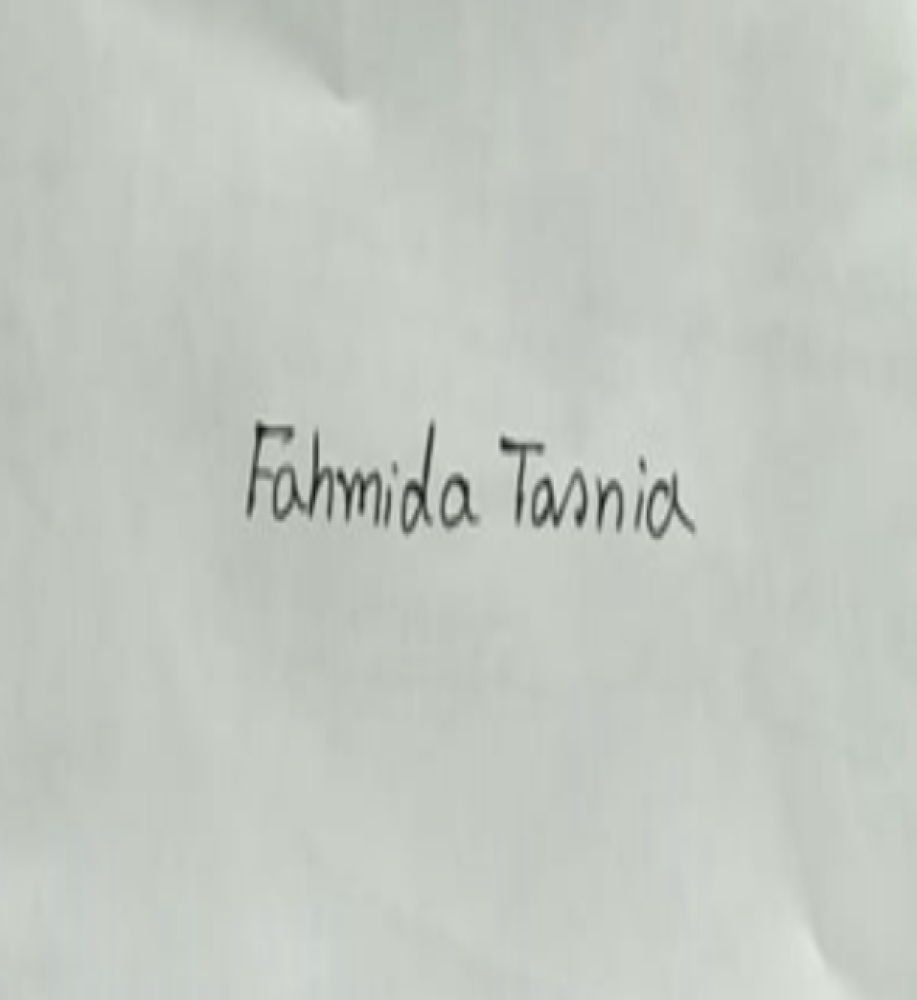 Fahmida Tasnia